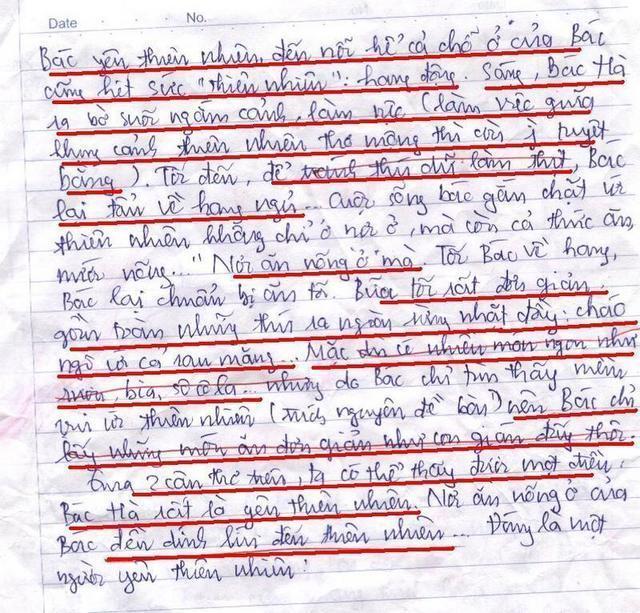 Date No.
Bác yên thiên nhiên, đến nỗi hể cả chỗ ở của Bác
cũng hết sức "thiên nhiên": hang động. Sáng, Bác Hà
ra bờ suối ngắm cảnh, làm việc (làm việc giữa
khung cảnh thiên nhiên thơ mộng thì còn j tuyệt
bằng). Tối đến, để tránh thú dữ làm thịt, Bác
lại tản về hang ngủ... Cuộc sống bác gắn chặt với
thiên nhiên không chỉ ở nơi ở, mà còn cả thức ăn,
nước uống..." Nơi ăn nống ở mà. Tối Bác về hang,
Bác lại chuẩn bị ăn tối. Bữa tối rất đơn giản
gồm toàn những thứ ra ngoài rừng nhặt đầy: cháo
ngô với cả rau măng... Mặc dù có nhiều món ngon như
rượu, bia, sô cô la... nhưng do Bác chỉ tìm thấy niềm
vui với thiên nhiên (trích nguyên đề bài) nên Bác chỉ
lấy những món ăn đơn giản như con gián đấy thôi.
Qua 2 câu thơ trên, ta có thể thấy được một điều:
Bác Hà rất là yên thiên nhiên. Nơi ăn nống ở của
Bác đến dính líu đến thiên nhiên... Đúng là một
người yên thiên nhiên!